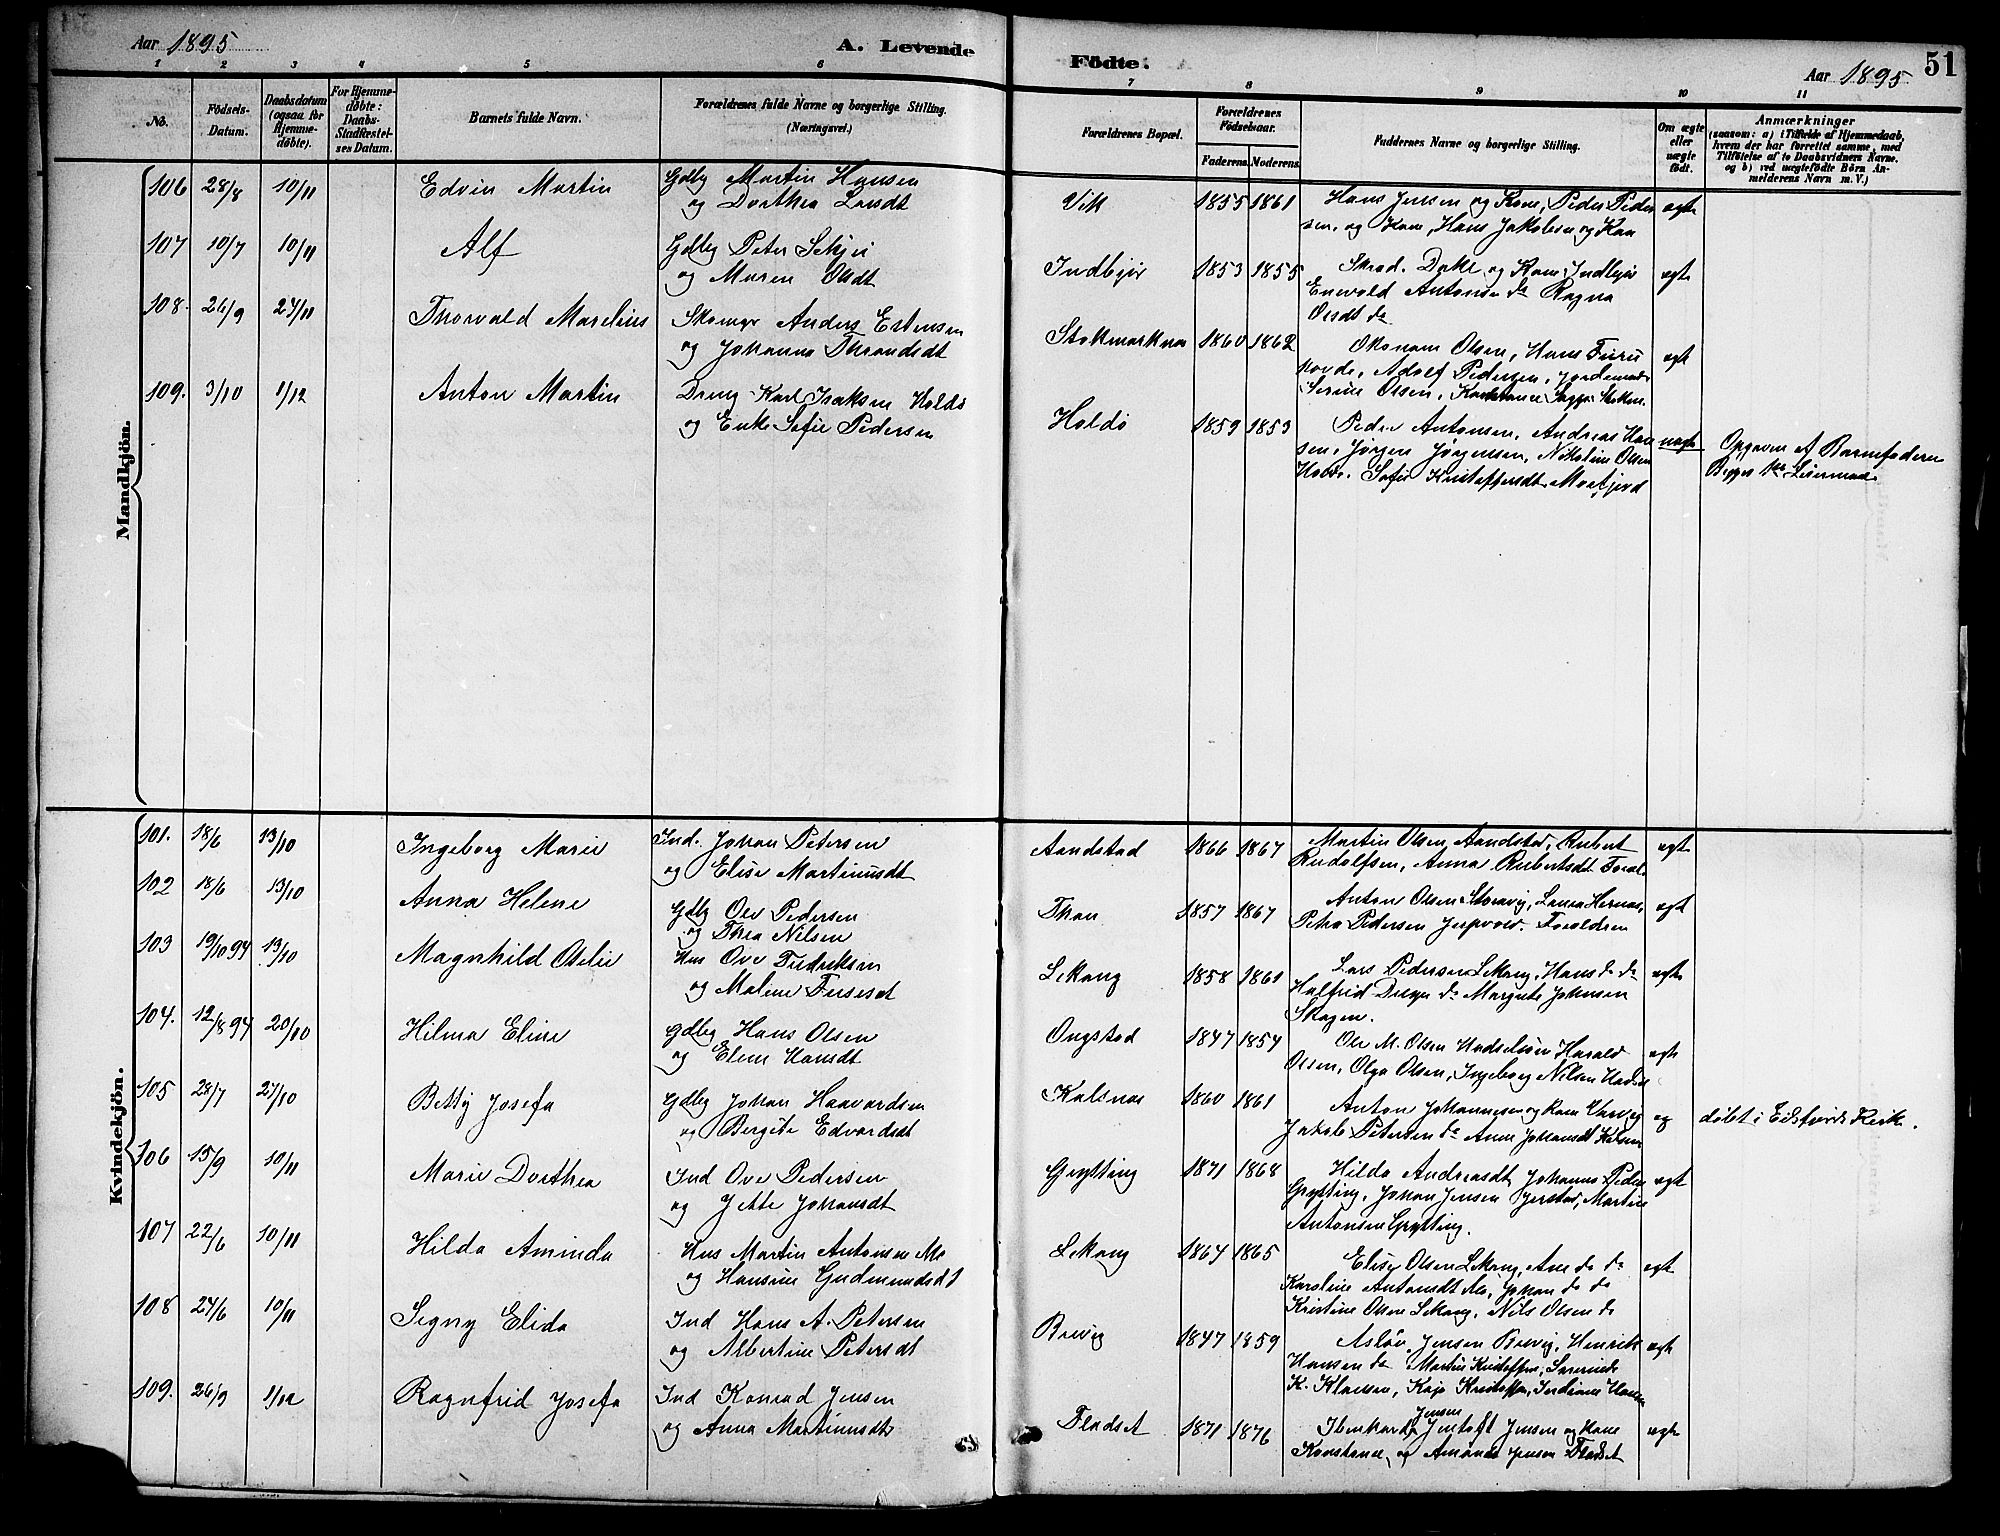 Aar 1895
A. Levende
Födte.
51
Aar 1895
1 2 3 4 5 6 7 8 9 10 11
No.
Födsels-
Datum.
Daabsdatum
(ogsaa for
Hjemme-
døbte).
For Hjemme-
døbte:
Daabs-
Stadfæstel-
ses Datum.
Barnets fulde Navn.
Forældrenes fulde Navne og borgerlige Stilling.
(Næringsvei.)
Forældrenes Bopæl.
Forældrenes
Födselsaar.
Faderens. Moderens.
Faddernes Navne og borgerlige Stilling.
Om ægte
eller
uægte
födt.
Anmærkninger
(saasom: a) i Tilfælde af Hjemmedaab,
hvem der har forrettet samme, med
Tilføielse af to Daabsvidners Navne.
og b) ved uægtefödte Börn An-
melderens Navn m. V.)
Mandkjön.
106 28/8 10/11 Edvin Martin Gdbg Martin Hansen
og Dorthea Larsdt
Vik 1855 1861 Hans Jensen og Kone, Peder Peder
sen, og Kone, Hans Jakobsen og Kon
ægte
107 10/7 10/11 Alf Gdbg Peter Schjei
og Maren Olsdt
Indbjör 1853 1855 Skrad. Dyke og Kone Indbjör
Enevold Antonsen do Ragna
Olsdt do
ægte
108. 26/9 24/11 Thorvald Marelius Skomgr Anders Estensen
og Johanna Throndsdt
Stokmarknes 1860 1862 Okonom Olsen, Hans Furu
Adolf Pedersen, Jordemoder
Serine Olsen, Konstance
ægt
109. 3/10 1/12 Anton Martin Dreng Karl Isaksen Holdö
og Enke Sofie Pedersen
Holdö 1859 1853 Peder Antonsen, Andreas Han
sen, Jørgen Jørgensen, Nikoline Olsen
Sofie Kristoffersdt Morfjord
uægte
Opgiven af Barnefaderen
Begges 1ste Leiermaal
Kvindekjön.
101. 18/6 13/10 Ingeborg Marie Ind. Johan Petersen
og Elise Martinusdt
Aandstad 1866 1867 Martin Olsen Aandstad, Rubert
Rudolfsen, Anna Rubertsdt Foræl.
ægt
102 18/6 13/10 Anna Helene Gdbg Ole Pedersen
og Thea Nilsen
Thon 1857 1867 Anton Olsen Storvig, Laura Hernes,
Petra Pedersen Jerpvold. Foreldren
ægt
103 19/10 94 13/10 Magnhild Oselie Hus Ove Fredriksen
og Malene
Lekang 1858 1861 Lars Pedersen Lekang, Hans do do
Halfrid do Margrete Johnsen
Skagen.
ægte
104. 12/8 94 20/10 Hilma Eline Gdbg Hans Olsen
og Eline Hansdt
Ongstad 1847 1854 Ole M. Olsen Harald
Olsen, Olga Olsen, Ingeborg Nilsen
ægte
105 28/7 27/10 Betty Josefa Gdbg Johan Haavardsen
og Bergite Edvardsdt
Kalsnes 1860 1861 Anton Johannesen og Kone
Jakob Petersen do Anne Johansdt
døbt i Eidsfjords Kirke.
106 15/9 10/11 Marie Dorthea Ind Ove Pedersen
og Jette Johansdt
Grytting 1871 1868 Hilda Andreasdt, Johannes Peder
Grytting, Johan Jensen Jerstad, Martin
Antonsen Grytting.
ægt
107 22/6 10/11 Hilda Aminda Hus Martin Antonsen
og Hansine Gudmundsdt
Lekang 1864 1865 Elise Olsen Lekang, Ane do do
Karoline Antonsdt Johan do do
Kristine Olsen Lekang, Nils Olsen do
ægt
108 24/6 10/11 Signy Elida Ind Hans A. Petersen
og Albertine Petersdt
Breivig 1847 1859 Asløv Jensen Breivig, Henrik
Hansen do Martin Kristoffer,
K. Klausen, Kaja Kristoffer,
ægt
109. 26/9 1/12 Ragnfrid Josefa Ind Konrad Jensen
og Anna Martinusdt
Fladset 1871 1876 Jensen og Kone
Konstanse, og Amanda Jensen Fladset
ægte
Jensen